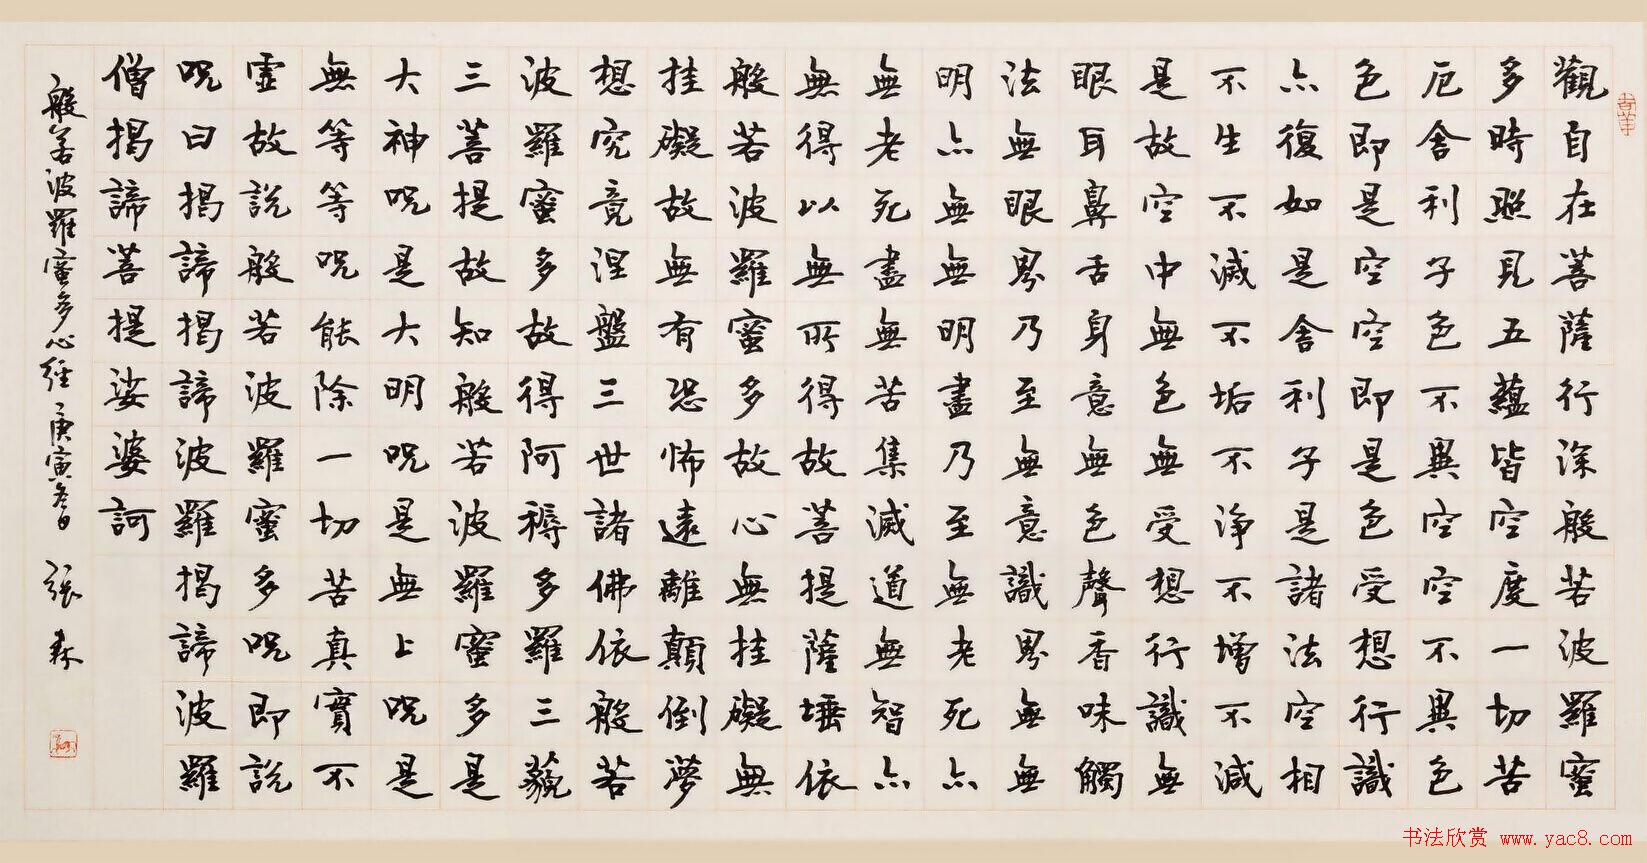 觀自在菩薩行深般若波羅蜜
多時照見五蘊皆空度一切苦
厄舍利子色不異空空不異色
色即是空空即是色受想行識
亦復如是舍利子是諸法空相
不生不滅不垢不淨不增不減
是故空中無色無受想行識無
眼耳鼻舌身意無色聲香味觸
法無眼界乃至無意識界無無
明亦無無明盡乃至無老死亦
無老死盡無苦集滅道無智亦
無得以無所得故菩提薩埵依
般若波羅蜜多故心無挂礙無
挂礙故無有恐怖遠離顛倒夢
想究竟涅盤三世諸佛依般若
波羅蜜多故得阿耨多羅三藐
三菩提故知般若波羅蜜多是
大神呪是大明呪是無上呪是
無等等呪能除一切苦真實不
虛故說般若波羅蜜多呪即說
呪曰揭諦揭諦波羅揭諦波羅
僧揭諦菩提娑婆訶
般若波羅蜜多心經 庚寅冬日 張森
吉羊
书法欣赏 www.yac8.com